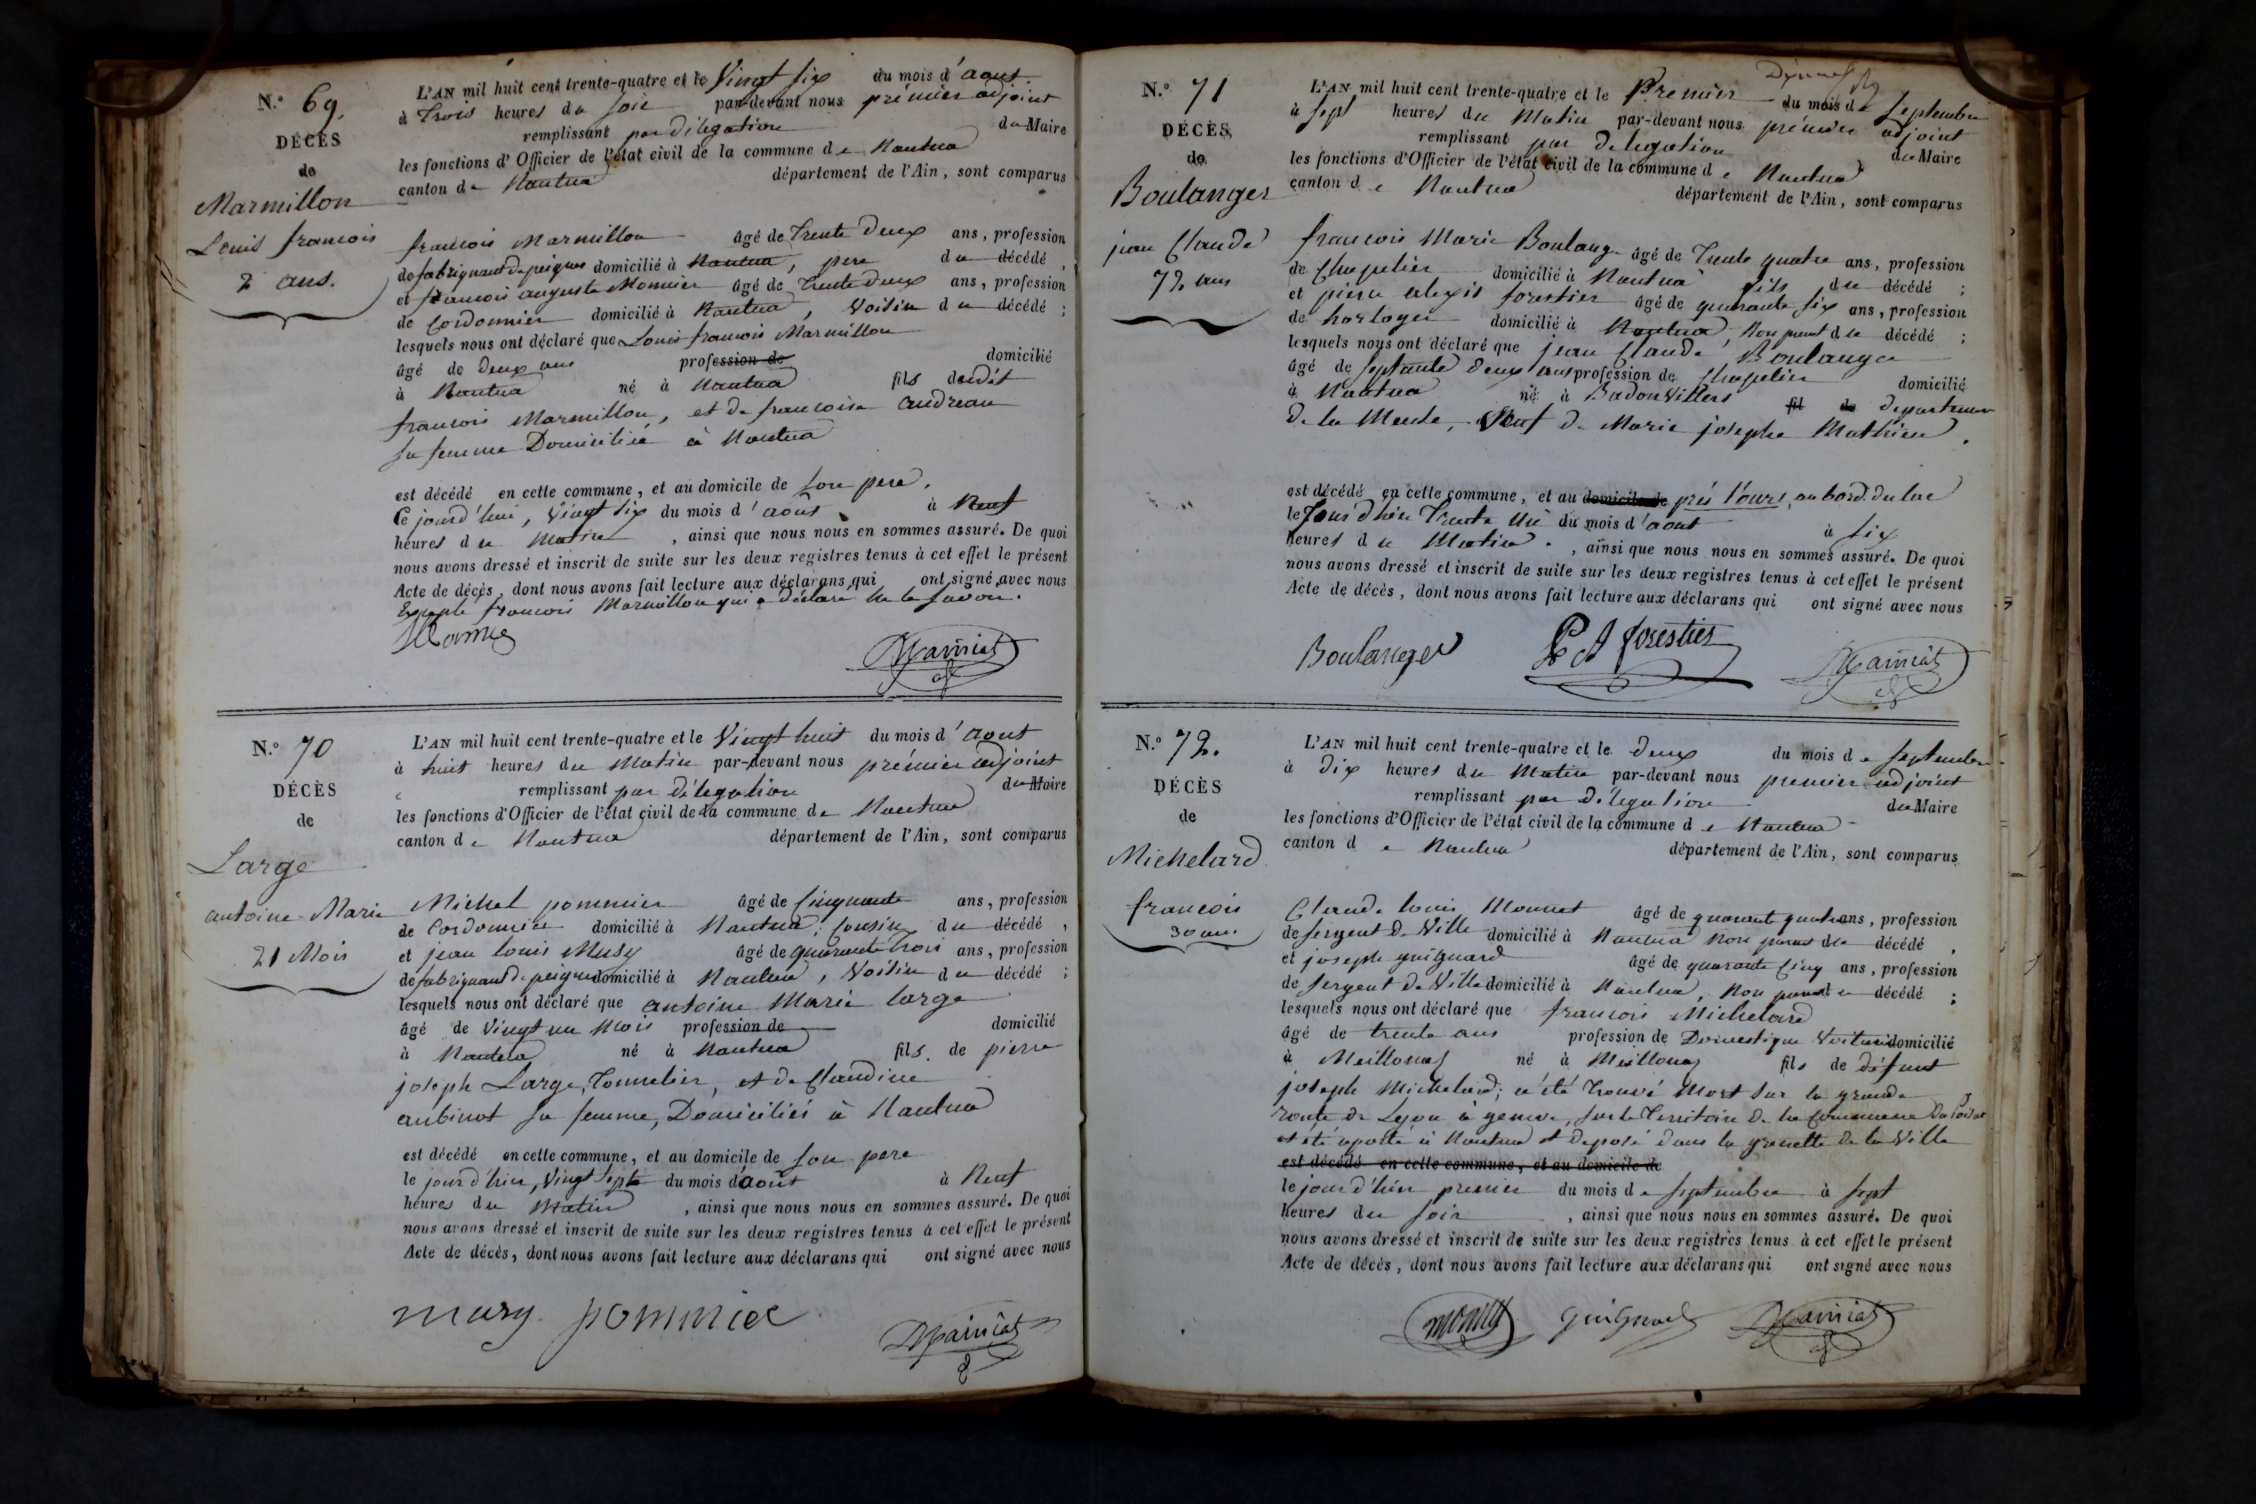 N.° 69.
DÉCÈS
de
Marmillon
Louis francois
2 ans.
L'AN mil huit cent trente-quatre et le Vingt Six du mois d'aout
à Trois heures du Soir par-devant nous prémier adjoint
remplissant par délégation du Maire
les fonctions d'Officier de l'état civil de la commune de Nantua
canton de Nantua département de l'Ain, sont comparus
francois Marmillon âgé de Trente deux ans, profession
de fabriquant de peignes domicilié à Nantua, pere du décédé,
et francois auguste Monnier âgé de Trente deux ans, profession
de Cordonnier domicilié à Nantua, Voisin du décédé;
lesquels nous ont déclaré que Louis francois Marmillon
âgé de deux ans profession de domicilié
à Nantua né à Nantua fils dudit
francois Marmillon, et de francoise andreau
sa femme Domiciliée à Nantua
est décédé en cette commune, et au domicile de son pere,
Ce jourd'hui, Vingt six du mois d'aout à Neuf
heures du Matin, ainsi que nous nous en sommes assuré. De quoi
nous avons dressé et inscrit de suite sur les deux registres tenus à cet effet le présent
Acte de décès, dont nous avons fait lecture aux déclarans qui ont signé avec nous
Excepté francois Marmillon qui a déclaré ne le savoir.
N.° 70
DÉCÈS
de
Large
antoine Marie
21 Mois
L'AN mil huit cent trente-quatre et le Vingt huit du mois d'aout
à huit heures du Matin par-devant nous prémier adjoint
remplissant par délégation du Maire
les fonctions d'Officier de l'état civil de la commune de Nantua
canton de Nantua département de l'Ain, sont comparus
Michel pommier âgé de Cinquante ans, profession
de Cordonnier domicilié à Nantua, Cousin du décédé,
et jean louis Musy âgé de quarante Trois ans, profession
de fabriquant de peignes domicilié à Nantua, Voisin du décédé;
lesquels nous ont déclaré que antoine Marie large
âgé de Vingt un Mois profession de domicilié
à Nantua né à Nantua fils de pierre
joseph Large, Tonnelier, et de Claudine
aubinot sa femme, Domiciliés à Nantua
est décédé en cette commune, et au domicile de son pere
le jour d'hier, Vingt Sept du mois d'août à Neuf
heures du Matin, ainsi que nous nous en sommes assuré. De quoi
nous avons dressé et inscrit de suite sur les deux registres tenus à cet effet le présent
Acte de décès, dont nous avons fait lecture aux déclarans qui ont signé avec nous
musy pommier
N.° 71
DÉCÈS
de
Boulanger
jean Claude
72 ans
L'AN mil huit cent trente-quatre et le Premier du mois de Septembre
à Sept heures du Matin par-devant nous prémier adjoint
remplissant par delegation du Maire
les fonctions d'Officier de l'état civil de la commune de Nantua
canton de Nantua département de l'Ain, sont comparus
francois Marie Boulanger âgé de Trente quatre ans, profession
de Chapelier domicilié à Nantua fils du décédé;
et pierre alexis forestier âgé de quarante six ans, profession
de horloger domicilié à Nantua, Non parent du décédé;
lesquels nous ont déclaré que jean Claude Boulanger
âgé de Septante deux ans profession de Chapelier domicilié
à Nantua né à BadonVillers fil de departement
De la Meurthe, Veuf de Marie josephe Mathieu.
est décédé en cette commune, et au domicile de prés l'ours, au bord du lac
le Jour d'hier Trente Un du mois d'aout à Six
heures du Matin, ainsi que nous nous en sommes assuré. De quoi
nous avons dressé et inscrit de suite sur les deux registres tenus à cet effet le présent
Acte de décès, dont nous avons fait lecture aux déclarans qui ont signé avec nous
Boulanger P A forestier
N.° 72.
DÉCÈS
de
Michelard
francois
30 ans
L'AN mil huit cent trente-quatre et le deux du mois de Septembre
à Dix heures du Matin par-devant nous premier adjoint
remplissant par délégation du Maire
les fonctions d'Officier de l'état civil de la commune de Nantua
canton de Nantua département de l'Ain, sont comparus
Claude louis Monnet âgé de quarante quatre ans, profession
de Sergent de Ville domicilié à Nantua Non parent du décédé,
et joseph guignard âgé de quarante Cinq ans, profession
de Sergent de Ville domicilié à Nantua, Non parent du décédé;
lesquels nous ont déclaré que francois Michelard
âgé de trente ans profession de Domestique Voiturier domicilié
à Meillonas né à Meillonas fils de défunt
joseph Michelard; a été Trouvé Mort sur la grande
route de Lyon à geneve, sur le Territoire de la Commune Du Poizat
et été aporté à Nantua et deposé dans la grenette de la Ville
est décédé en cette commune, et au domicile de
le jour d'hier premier du mois de Septembre à Sept
heures du Soir, ainsi que nous nous en sommes assuré. De quoi
nous avons dressé et inscrit de suite sur les deux registres tenus à cet effet le présent
Acte de décès, dont nous avons fait lecture aux déclarans qui ont signé avec nous
monnet guignard